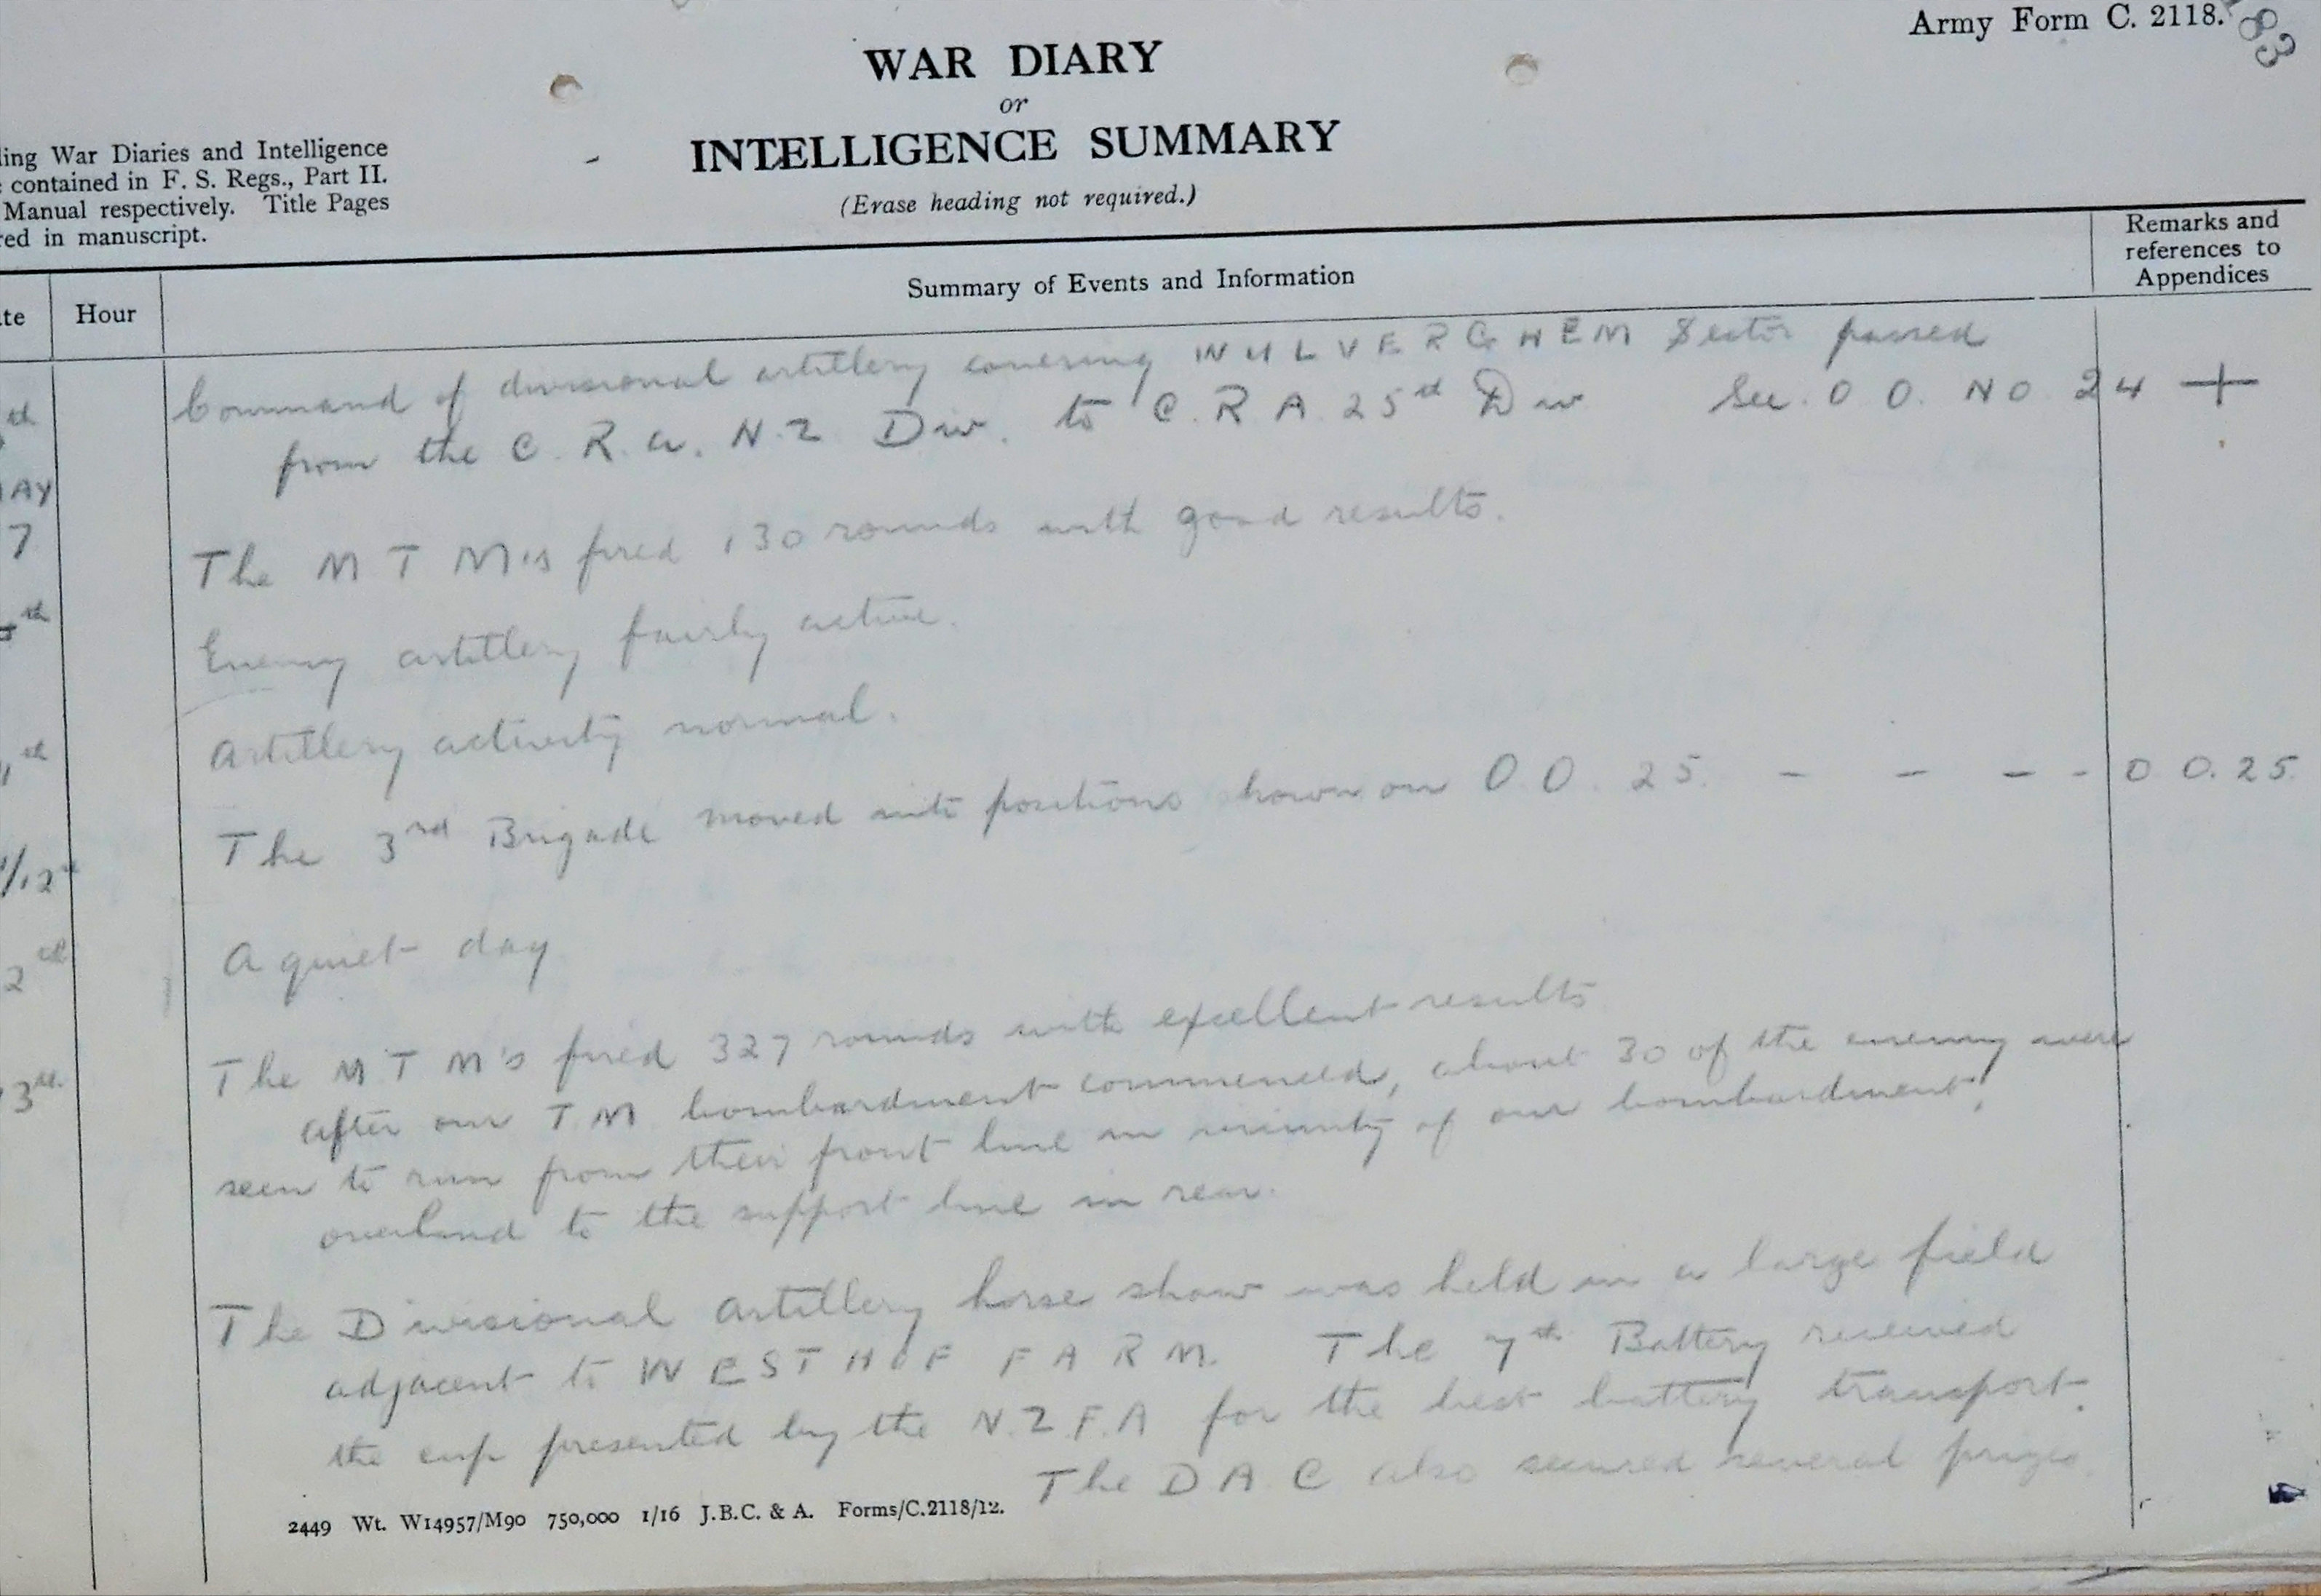 Army Form C. 2118.
83
WAR DIARY
or
INTELLIGENCE SUMMARY
(Erase heading not required.)
ling War Diaries and Intelligence
contained in F. S. Regs., Part II.
Manual respectively. Title Pages
red in manuscript.
te Hour Summary of Events and Information Remarks and references to Appendices
th Command of divisional artillery covering WULVERGHEM Sector passed
from the C.R.A. N.Z Div. to C.R.A. 25th Div See. O O. No 24 +
MAY
7 The M T M's fired 130 rounds with good results.
th Enemy artillery fairly active.
th Artillery activity normal.
The 3rd Brigade moved into positions shown on O O. 25. - - - - O O. 25.
/12th
2th A quiet day
3th The M.T M's fired 327 rounds with excellent results
after our T.M. bombardment commenced, about 30 of the enemy were
seen to run from their front line in vicinity of our bombardment,
overland to the support line in rear.
The Divisional Artillery horse show was held in a large field
adjacent to WESTHOF FARM. The 7th Battery received
the cup presented by the N.Z.F.A for the best battery transport.
The D A C also secured several prizes.
2449 Wt. W14957/M90 750,000 1/16 J.B.C. & A. Forms/C.2118/12.